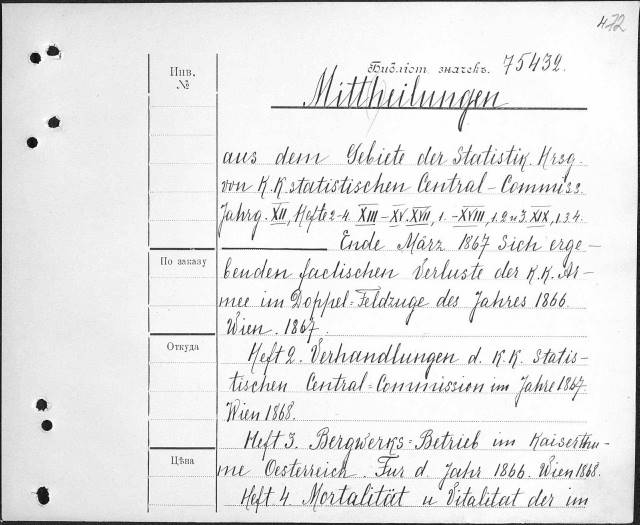 472
Инв.
№
Библіот. значекъ. 75432.
Mittheilungen
aus dem Gebiete der Statistik. Hrsg.
von K.K. statistischen Central-Commiss.
Jahrg. XII, Hefte 2-4. XIII-XV. XVII, 1.-XVIII, 1.2 u 3. XIX, 1.3.4.
Ende März 1867 sich erge-
По заказу
benden factischen Verluste der K.K. Ar-
mee im Doppel-Feldzuge des Jahres 1866.
Wien. 1867.
Откуда
Heft 2. Verhandlungen d. K.K. statis-
tischen Central-Commission im Jahre 1867.
Wien 1868.
Heft 3. Bergwerks-Betrieb im Kaiserthu-
Цѣна
me Oesterreich. Fur d. Jahr 1866. Wien 1868.
Heft 4 Mortalität u Vitalitat der im